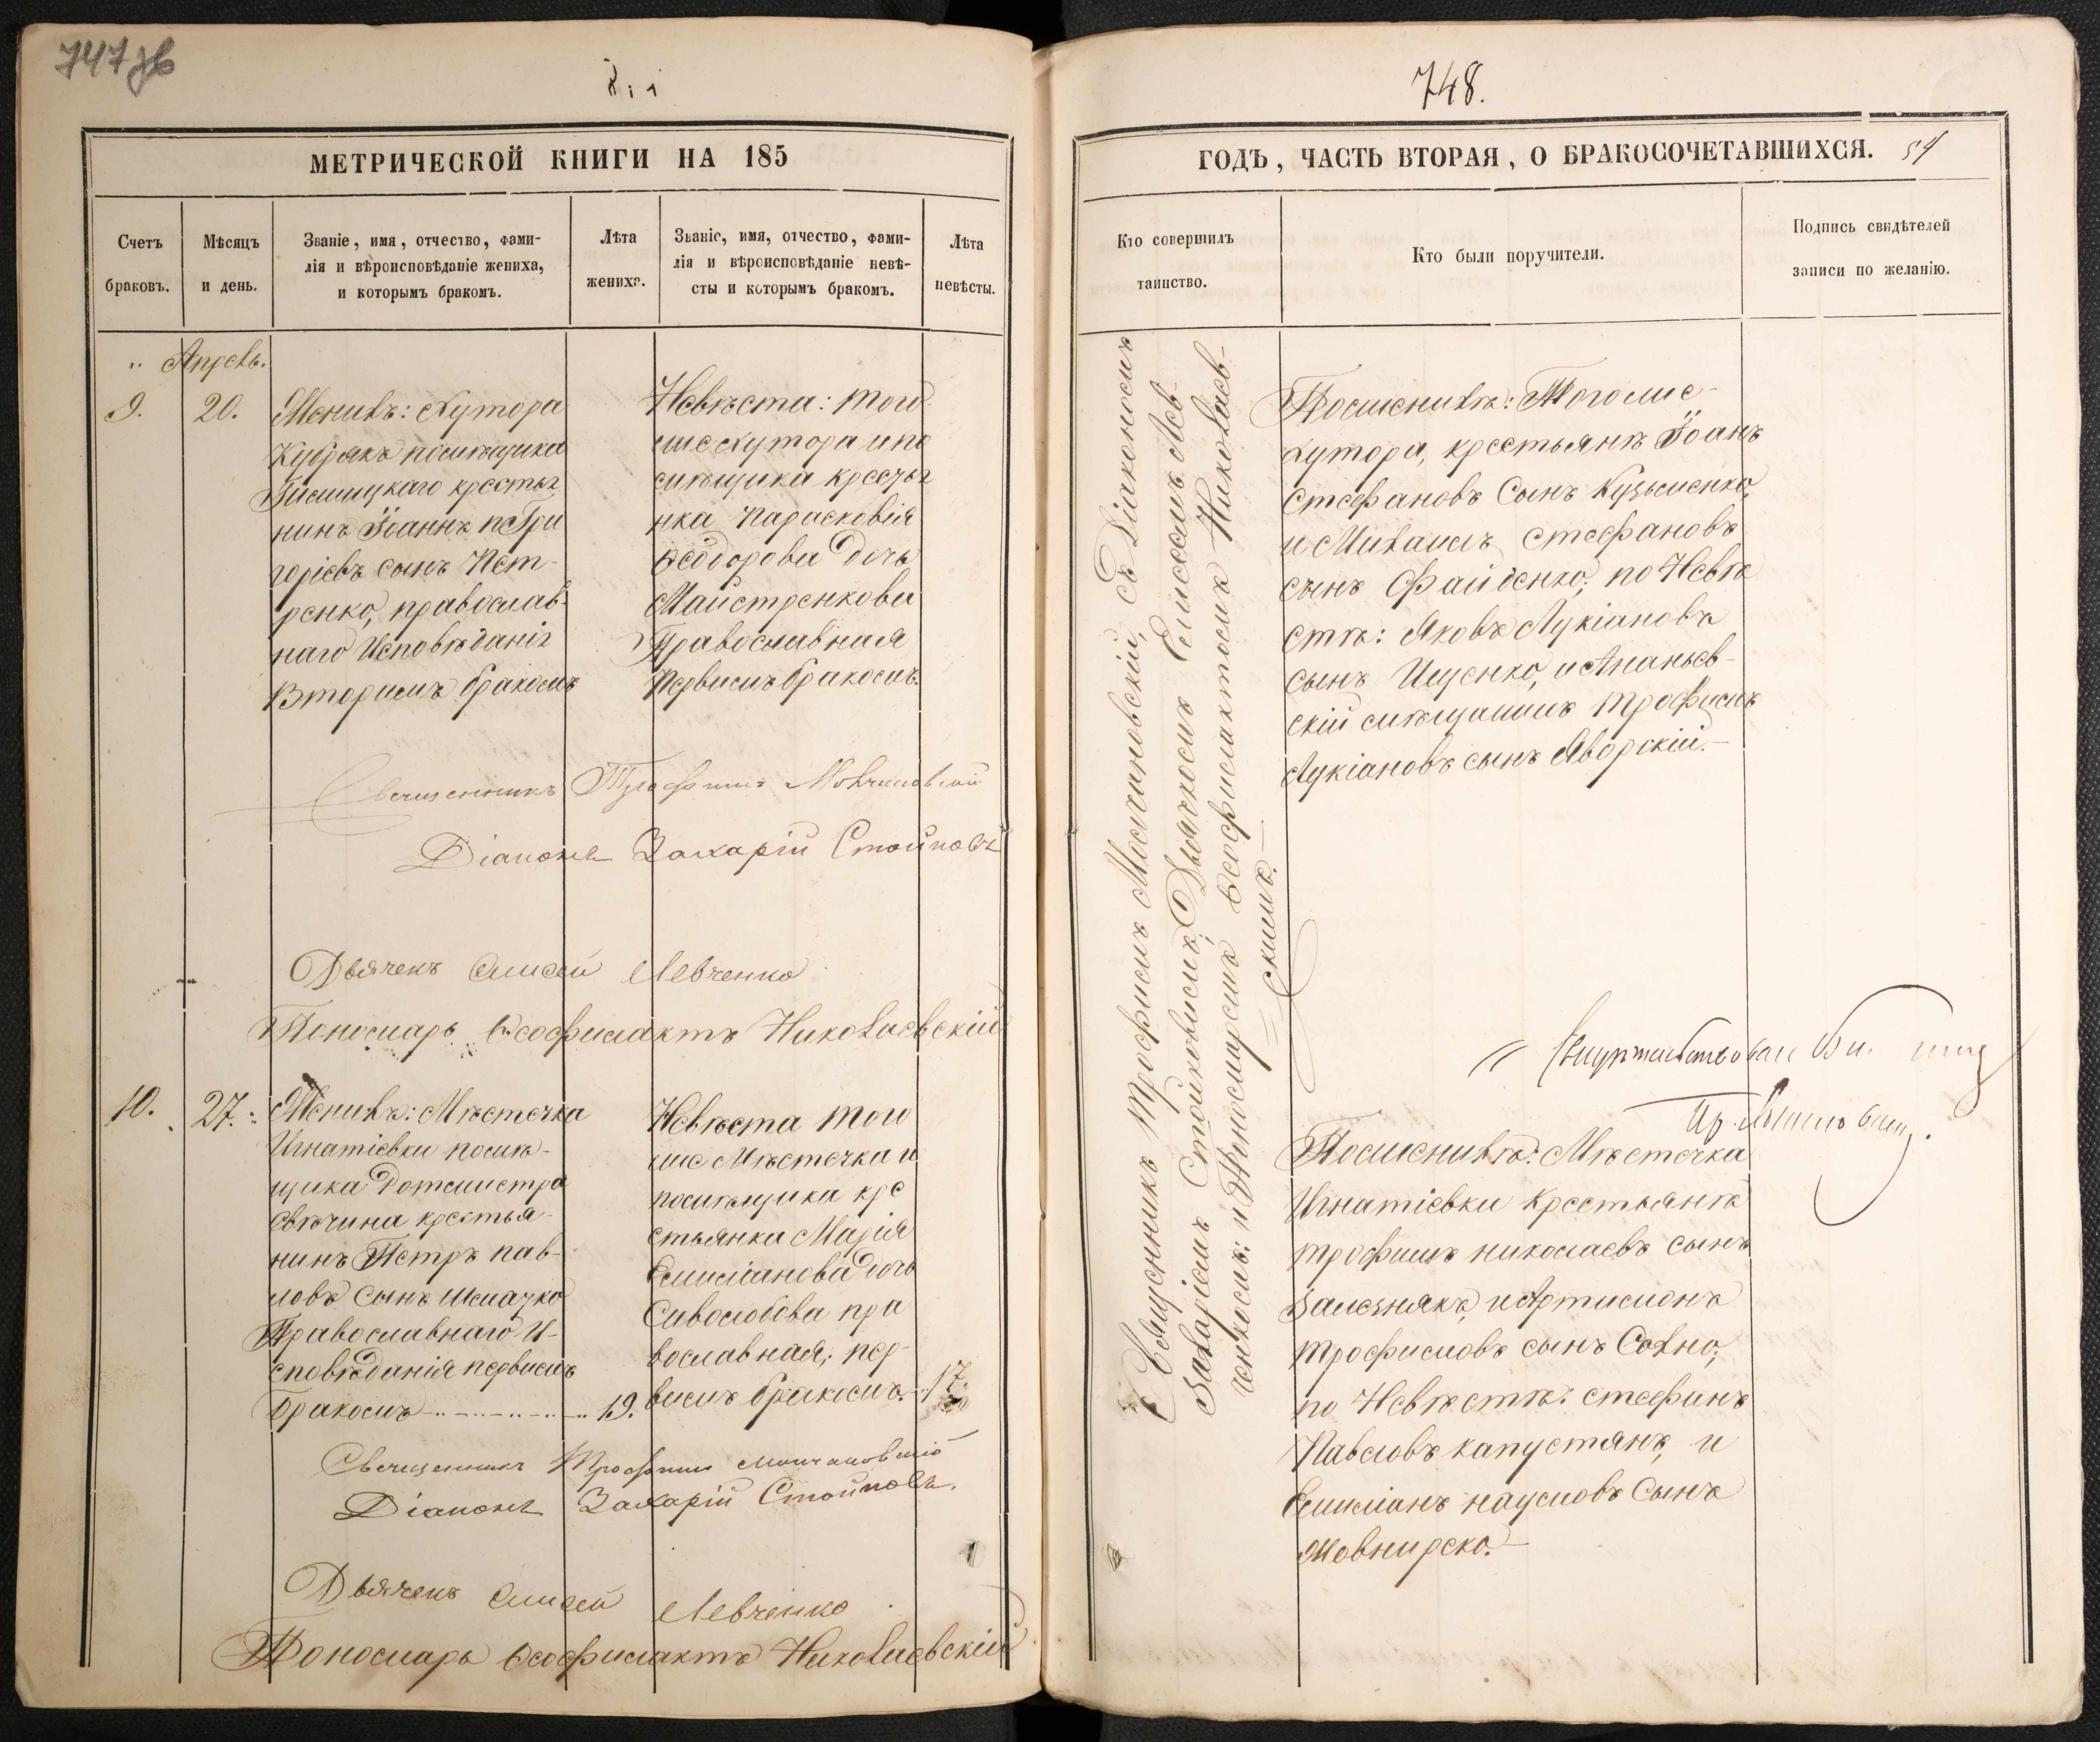 747 зв
748.
МЕТРИЧЕСКОЙ КНИГИ НА 185
Счетъ
браковъ.
Мѣсяцъ
и день.
Званіе, имя, отчество, фами-
лія и вѣроисповѣданіе жениха,
и которымъ бракомъ.
Лѣта
жениха.
Званіе, имя, отчество, фами-
лія и вѣроисповѣданіе невѣ-
сты и которымъ бракомъ.
Лѣта
невѣсты.
Апрель.
9.
20.
Женихъ: Хутора
Кубряка помѣщика
крестья
нинъ Іоаннъ Гри
горіевъ сынъ Пет-
ренко, православ-
наго Исповѣданія
Вторымъ бракомъ
Невѣста: того
же Хутора и по
мѣщика кресть
нка Парасковія
Ѳеодорова Дочь
Майстренкова
Православная
Первымъ бракомъ.
Священникъ Трофимъ Молчановскій
Діаконъ Захарій Стойковъ
Дьячекъ Елисей Левченко
Пономарь Ѳеофилактъ Николаевскій
10.
27.
Женихъ: Мѣстечка
Игнатіевки помѣ-
щика Ротмистра
Свѣчина крестья-
нинъ Петръ Пав-
ловъ Сынъ Шмачко
Православнаго И-
сповѣданія первымъ
Бракомъ 19.
Невѣста того
же Мѣстечка и
помѣщика кре
стьянка Марія
Емиліанова дочь
Сиволобова пра
вославная, пер-
вымъ бракомъ. 17.
Священникъ Трофимъ Молчановскій
Діаконъ Захарій Стойковъ.
Дьячекъ Елисей Левченко
Пономарь Ѳеофилактъ Николаевскій
ГОДЪ, ЧАСТЬ ВТОРАЯ, О БРАКОСОЧЕТАВШИХСЯ. 54
Кто совершилъ
таинство.
Кто были поручители.
Подпись свидѣтелей
записи по желанію.
Священникъ Трофимъ Молчановскій, съ Діакономъ
Захаріемъ Стойковымъ, Дьячкомъ Елисеемъ Лев-
ченкомъ: и Пономаремъ Ѳеофилактомъ Николаев-
скимъ.
По Женихѣ: Тогоже
хутора, крестьянѣ Іоанъ
Стефановъ Сынъ Кузьменко,
и Михаилъ Стефановъ
сынъ Файденко; по Невѣ
стѣ: Яковъ Лукіановъ
сынъ Ищенко, и Ананьев-
скій мѣщанинъ Трофимъ
Лукіановъ сынъ Яворскій.
По Женихѣ: Мѣстечка
Игнатіевки Крестьянѣ
Трофимъ Николаевъ сынъ
Зализнякъ, и Артимонъ
Трофимовъ сынъ Сохно;
по Невѣстѣ: Стефанъ
Павловъ Капустянъ, и
Емиліанъ Наумовъ Сынъ